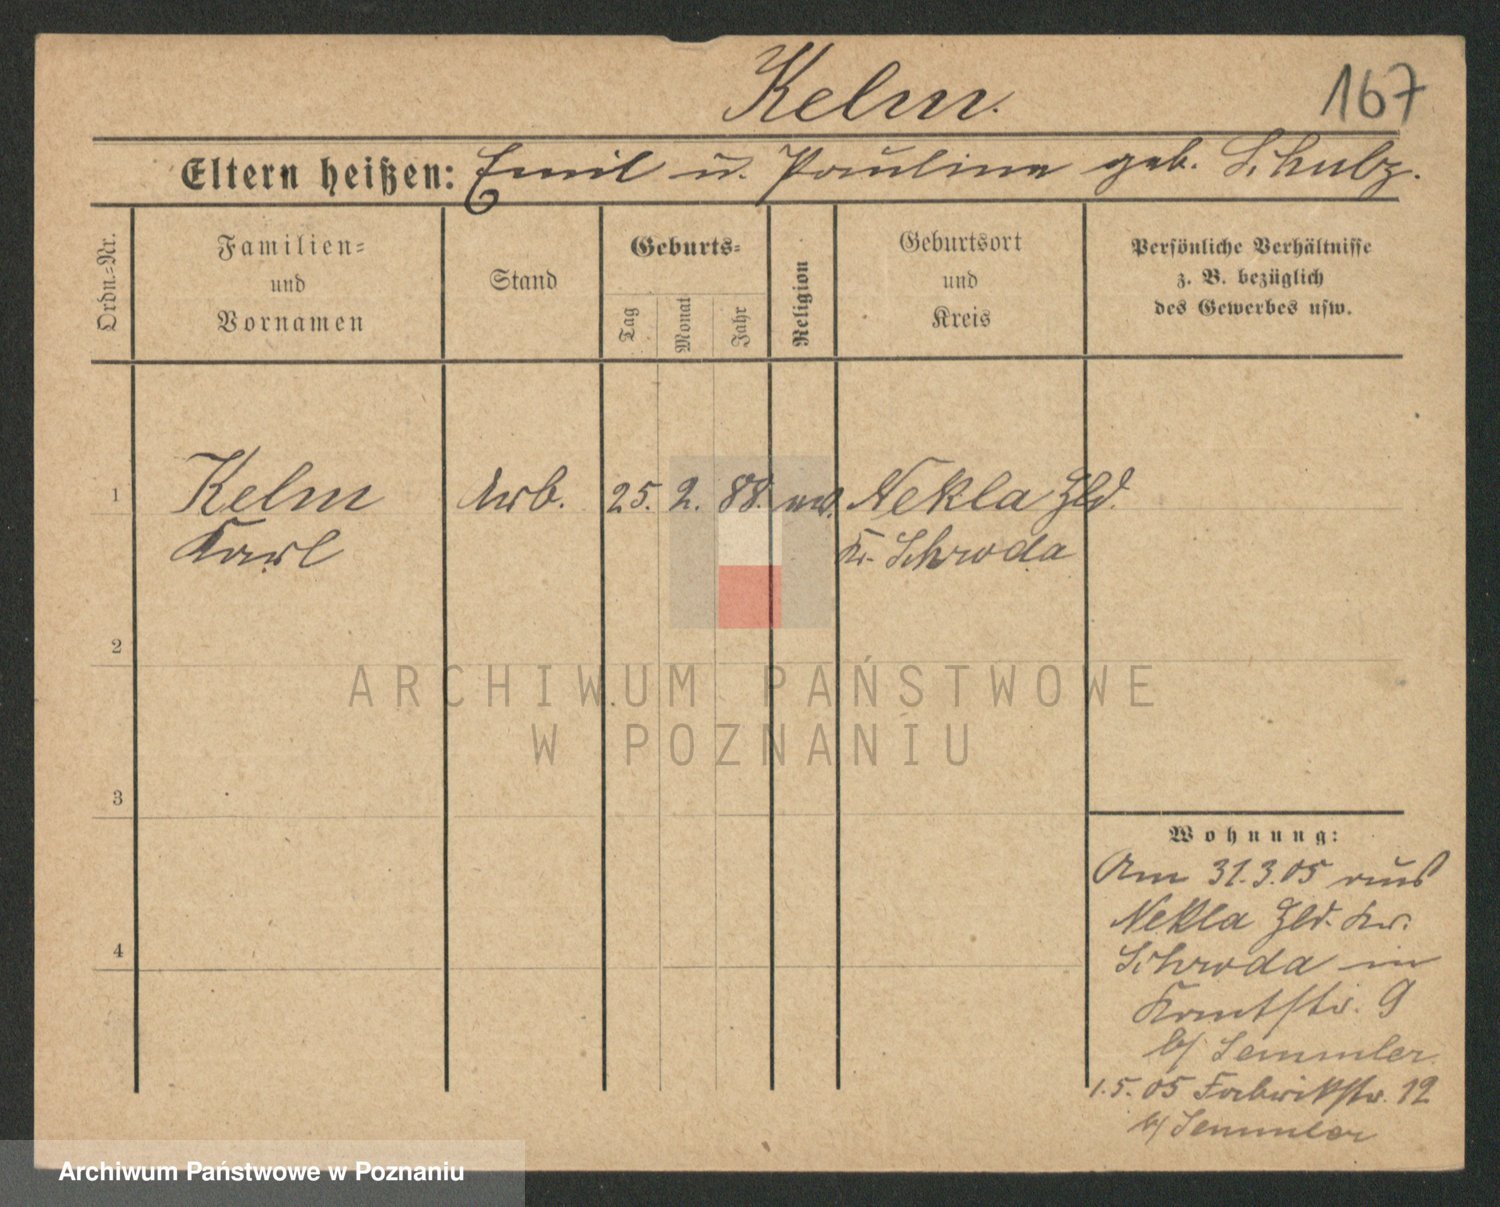 Kelm.
167
Eltern heißen: Emil u. Pauline geb. Schulz.
Ordn.-Nr.
Familien-
und
Vornamen
Stand
Geburts-
Tag
Monat
Jahr
Religion
Geburtsort
und
Kreis
Persönliche Verhältnisse
z. B. bezüglich
des Gewerbes usw.
1 Kelm Arb. 25. 2. 88. Nekla Hld.
Karl Kr. Schroda
2
3
4
Wohnung:
Am 31.3.05 aus
Nekla Hld. Kr.
Schroda in
Kantstr. 9
b/ Semmler
1.5.05 Fabrikstr. 12
b/ Semmler
ARCHIWUM PAŃSTWOWE
W POZNANIU
Archiwum Państwowe w Poznaniu